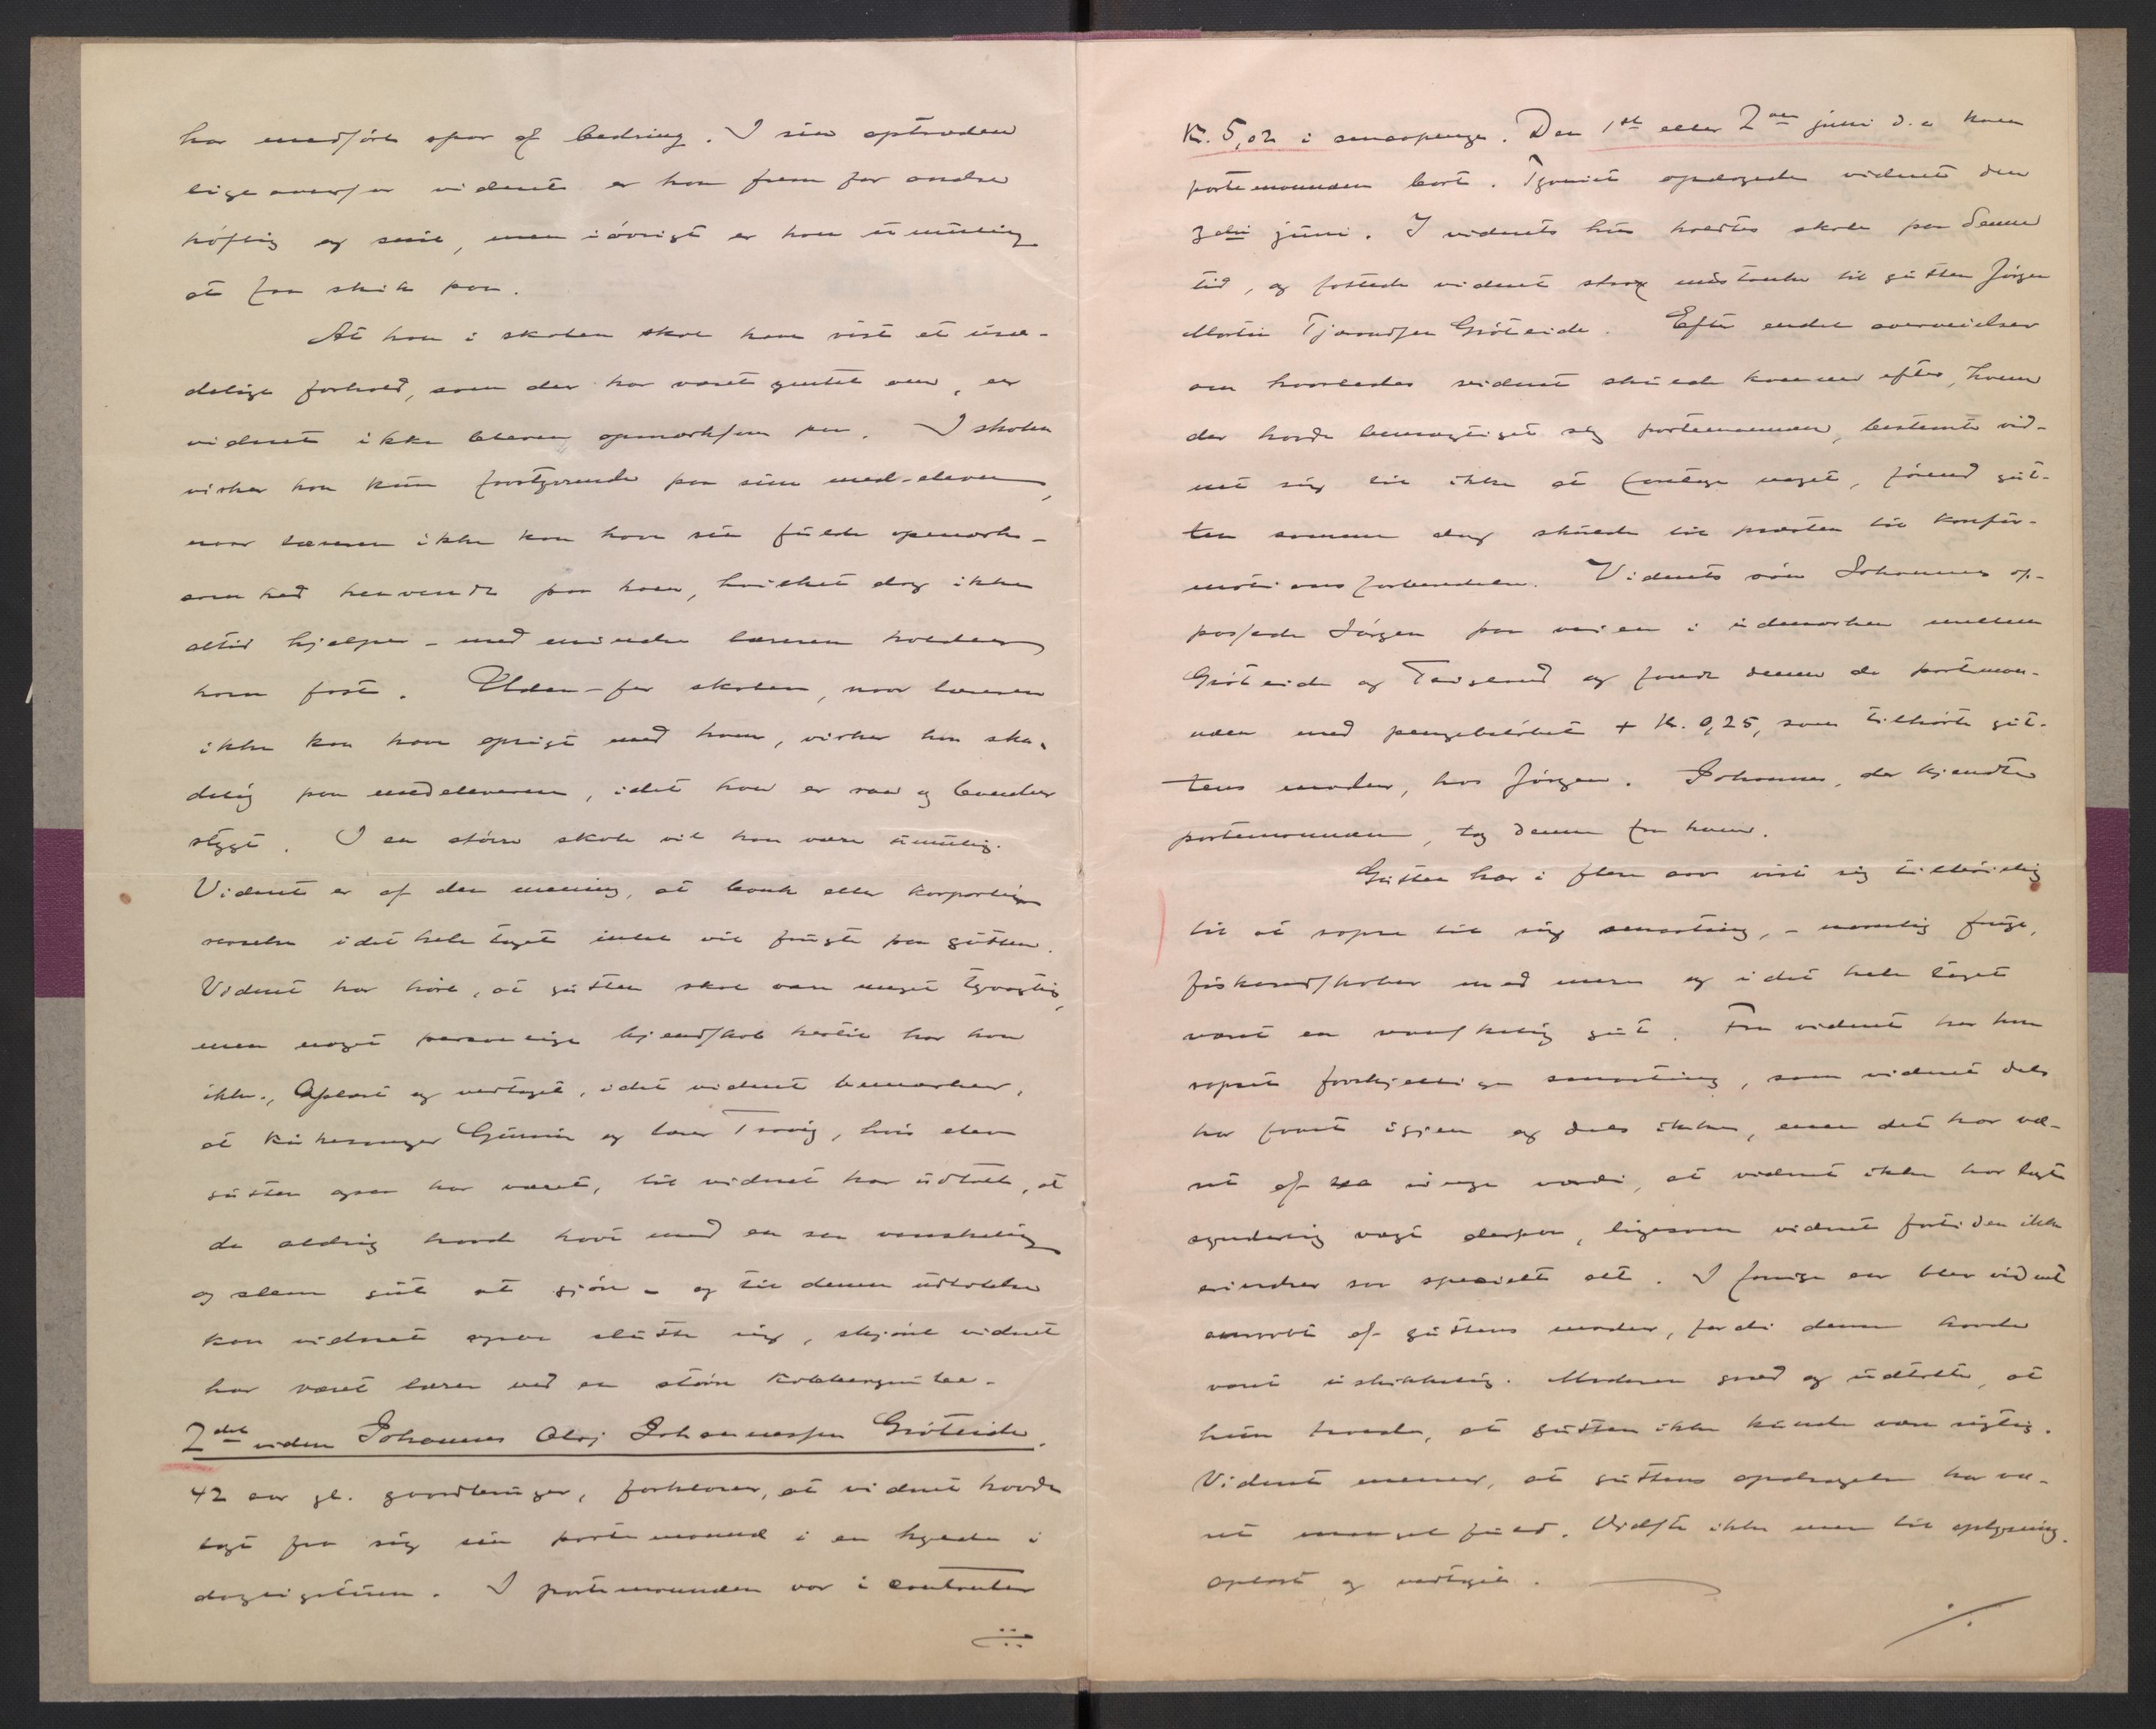 har medført spor af bedring. I sin optræden
ligeoverfor vidnet er han frem for andre
høflig og snil, men iøvrigt er han umulig
at faa skik paa.
At han i skolen skal have vist et usæ-
delige forhold, som der har været ymtet om, er
vidnet ikke bleven opmærksom paa. I skolen
virker han kun forstyrrende paa sine med-elever,
naar læreren ikke kan have sin fulde opmærk-
somhed henvendt paa ham, hvilket dog ikke
altid hjelper – med mindre læreren holder
ham fast. Uden-for skolen, naar læreren
ikke kan have opsigt med ham, virker han ska-
delig paa medeleverne, idet han er raa og bander
stygt. I en større skole vil han være umulig.
Vidnet er af den mening, at bank eller korporlig
revselse idethele taget intet vil frugte paa gutten.
Vidnet har hørt, at gutten skal være meget tyvagtig,
men noget personlige kjendskab hertil har han
ikke. Oplæst og vedtaget, idet vidnet bemærker,
at kirkesanger og lærer, hvis elev
gutten ogsaa har været, til vidnet har udtalt, at
de aldrig havde havt med en saa vanskelig
og slem gut at gjøre – og til denne udtalelse
kan vidnet ogsaa slutte sig, skjønt vidnet
har været lærer ved en større.
2det vidne Johannes Olaj Johannessen Grøteide,
42 aar gl. gaardbruger, forklarer, at vidnet havde
lagt fra sig sin portemonnæ i en hylde i
dagligstuen. I portemonnæen var i contanter
Kr. 5,02 i smaapenge. Den 1ste eller 2den juni d.a. kom
portemonnæen bort. Tyveriet opdagede vidnet den
3die juni. I vidnets hus holdtes skole paa denne
tid, og fattede vidnet strax mistanke til gutten Jørgen
Martin Tjerandsen Grøteide. Efter endel overveielser
om hvorledes vidnet skulde komme efter, hvem
der havde bemægtiget sig portemonnæen, bestemte vid-
net sig til ikke at foretage noget, førend gut-
ten samme dag skulde til præsten til konfir-
mationsforberedelse. Vidnets søn Johannes op-
passede Jørgen paa veien i udmarken mellem
Grøteide og og fandt denne da portemon-
næen med pengebeløbet + kr. 0,25, som tilhørte gut-
tens moder, hos Jørgen. Johannes, der kjendte
portemonnæen, tog denne fra ham.
Gutten har i flere aar vist sig tilbøielig
til at rapse til sig smaating, – navnlig frugt,
fiskeredskaber med mere og i det hele taget
været en vanskelig gut. Fra vidnet har han
rapset forskjellige smaating, som vidnet dels
har faaet igjen og dels ikke, men det har væ-
ret af saa ringe værdi, at vidnet ikke har lagt
synderlig vægt derpaa, ligesom vidnet fortiden ikke
erindrer saa specielt alt. I forrige aar blev vidnet
anmodet af guttens moder, fordi denne havde
været uskikkelig. Moderen græd og udtalte, at
hun troede, at gutten ikke kunde være rigtig.
Vidnet mener, at guttens opdragelse har væ-
ret mangelfuld. Vidste ikke mere til oplysning.
Oplæst og vedtaget.